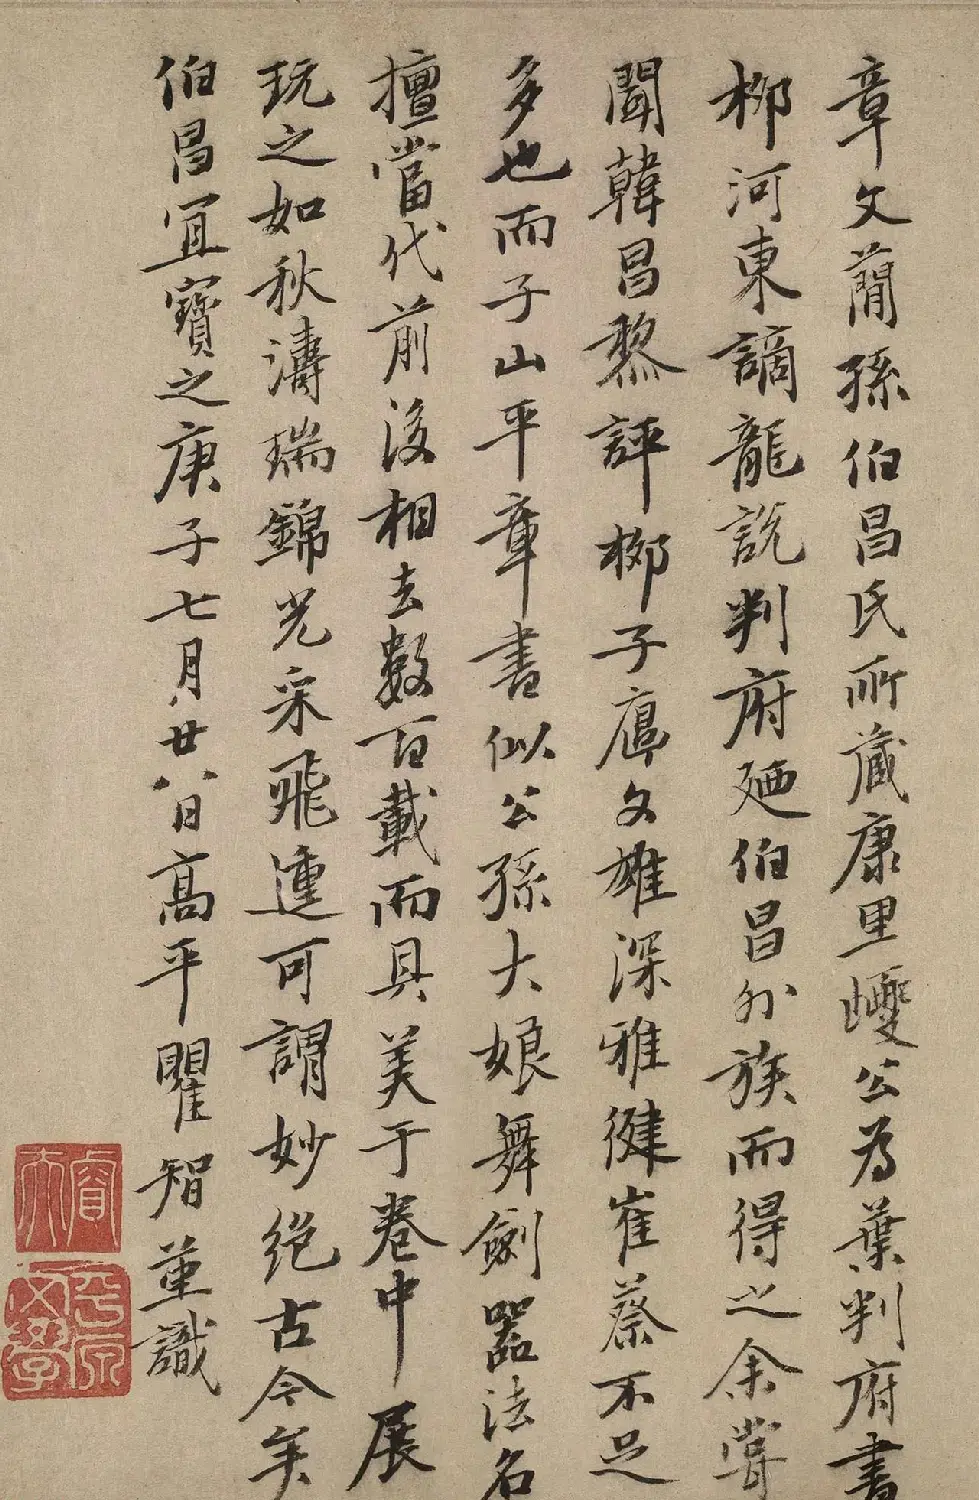 章文蕳孫伯昌氏所藏康里巙公為葉判府書
柳河東謫龍說判府廼伯昌外族而得之余嘗
聞韓昌黎評柳子厚文雄深雅健崔蔡不足
多也而子山平章書似公孫大娘舞劍器法名
擅當代前後相去數百載而具美于卷中展
玩之如秋濤瑞錦光采飛連可謂妙絕古今矣
伯昌宜寶之庚子七月廿八日高平瞿智堇識
睿夫